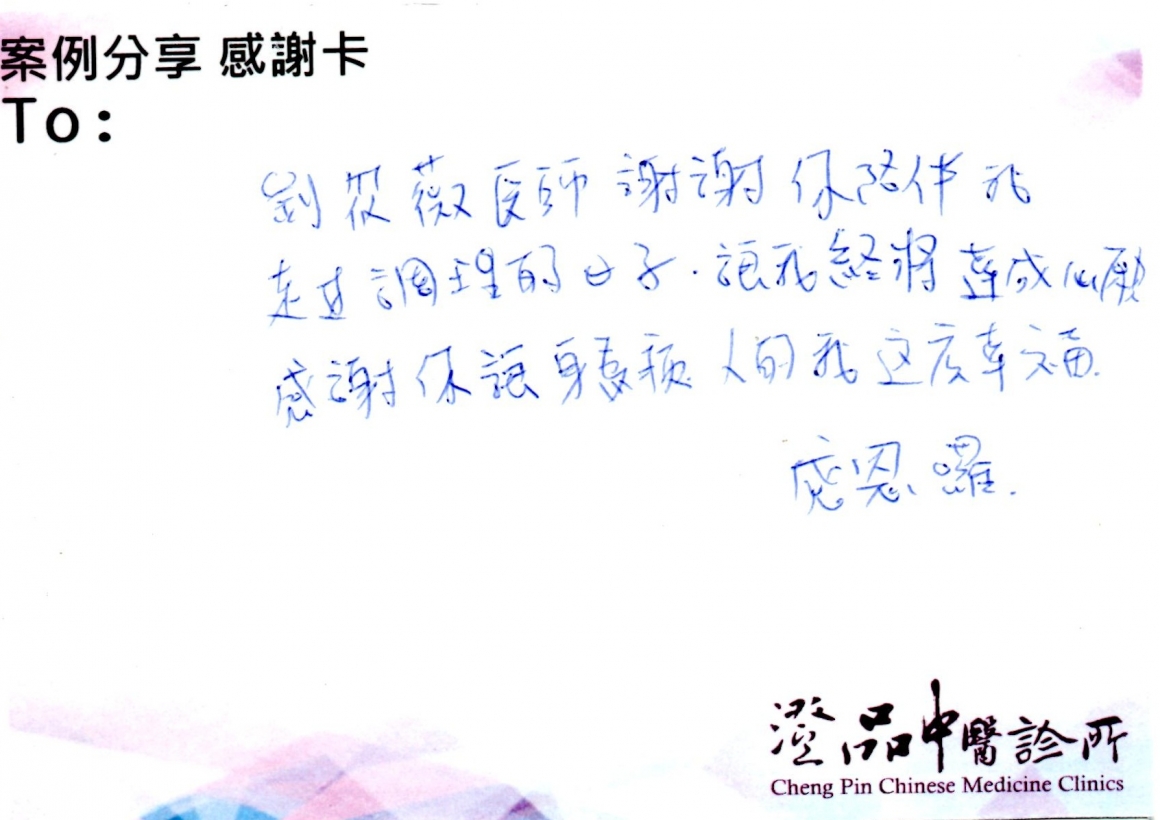 案例分享 感謝卡
To:
劉筱薇医師 謝謝 你陪伴我
走过調理的日子.讓我終將達成心願
感謝你讓身為病人的我这麼幸福.
感恩囉.
澄品中醫診所
Cheng Pin Chinese Medicine Clinics